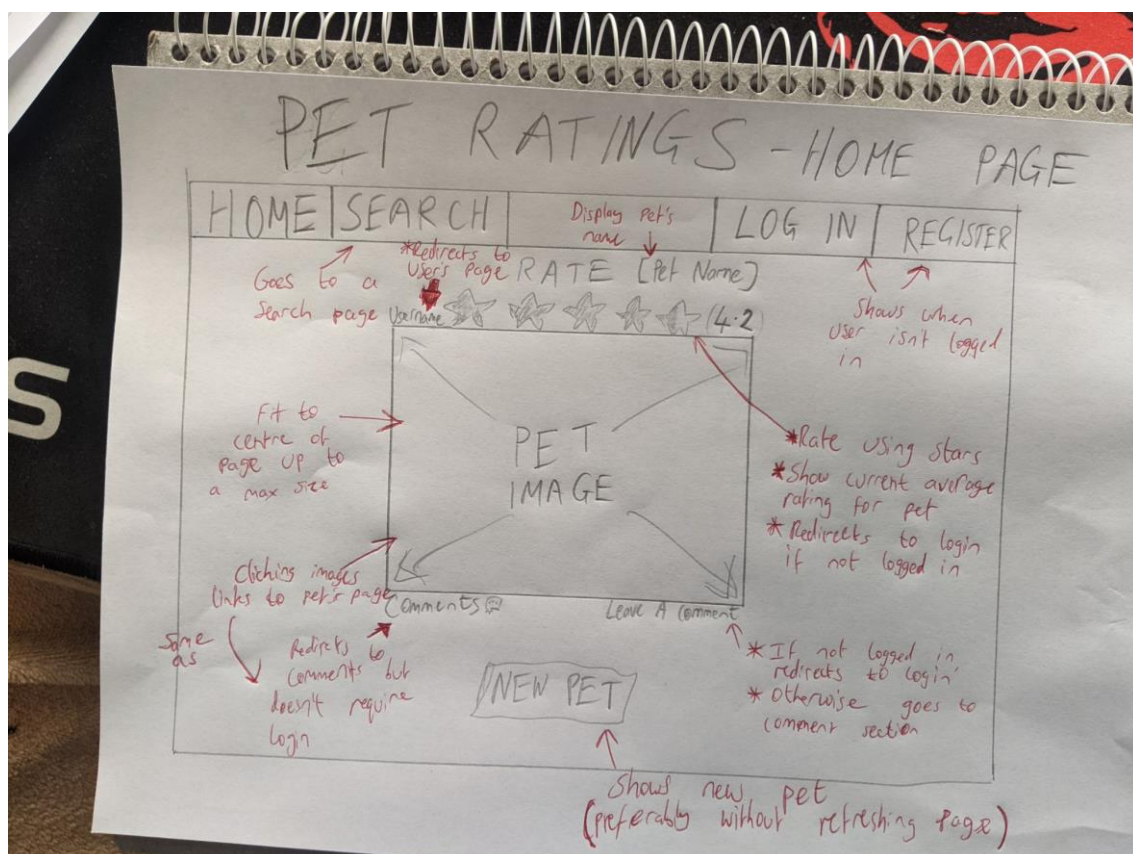 PET RATINGS - HOME PAGE
HOME
SEARCH
Display pet's
name
LOG IN
REGISTER
Goes to a
search page
*Redirects to
User's page
RATE [Pet Name]
Username
(4.2)
Shows when
user isnt logged
in
Fit to
centre of
page up to
a max size
PET
IMAGE
*Rate using stars
*Show current average
rating for pet
*Redirects to login
if not logged in
Clicking images
links to pet's page
Same
as
Comments
Leave A comment
Redirects to
comments but
doesn't require
login
*If not logged in
redirects to login
*Otherwise goes to
comment section
NEW PET
Shows new pet
(preferably without refreshing page)
S